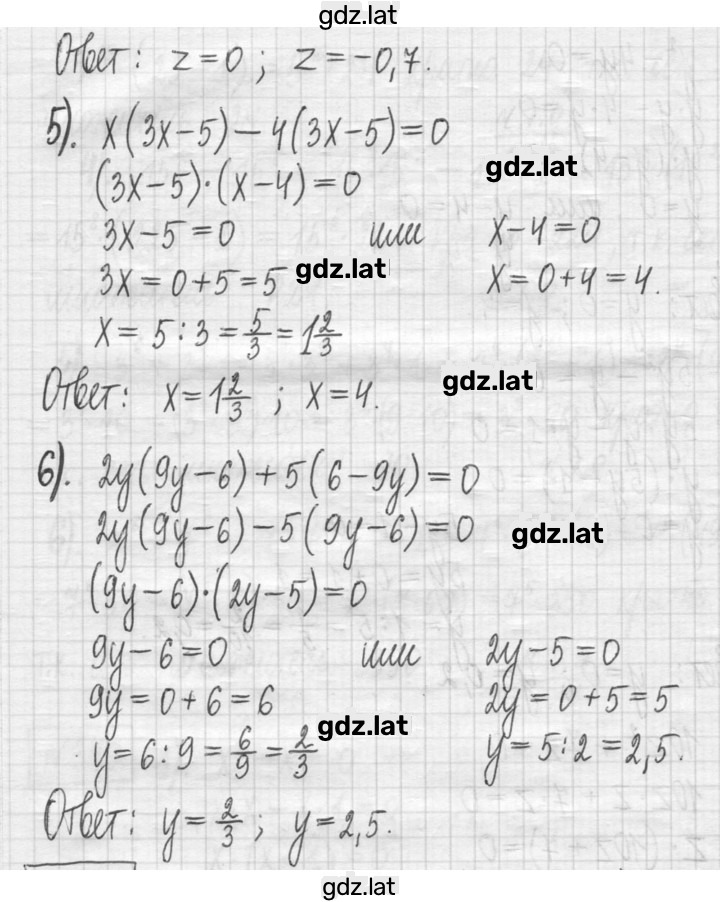 gdz.lat
Ответ: z=0; z=-0,7.
5). x(3x-5)-4(3x-5)=0
gdz.lat
(3x-5)·(x-4)=0
3x-5=0 или x-4=0
3x=0+5=5 gdz.lat x=0+4=4.
x=5:3=5/3=1 2/3
gdz.lat
Ответ: x=1 2/3; x=4.
6). 2y(9y-6)+5(6-9y)=0
2y(9y-6)-5(9y-6)=0 gdz.lat
(9y-6)·(2y-5)=0
9y-6=0 или 2y-5=0
9y=0+6=6 2y=0+5=5
gdz.lat
y=6:9=6/9=2/3 y=5:2=2,5.
Ответ: y=2/3; y=2,5.
gdz.lat